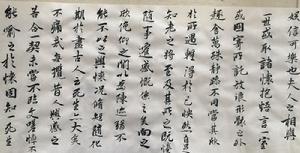 信可樂也夫人之相與
一世或取諸懷抱悟言一室
或因寄所託放浪形骸之外
趣舍萬殊靜躁不同當其欣
於所遇暫得於己快然自足
知老之將至及其所之既惓
隨事遷感慨係之矣向之
欣俛仰之間以為陳迹猶不
能不以之興懷況脩短隨化
期於盡古人云死生亦大矣
不痛哉每攬昔人興感之
若合一契未嘗不臨文嗟悼
能喻之於懷固知一死生